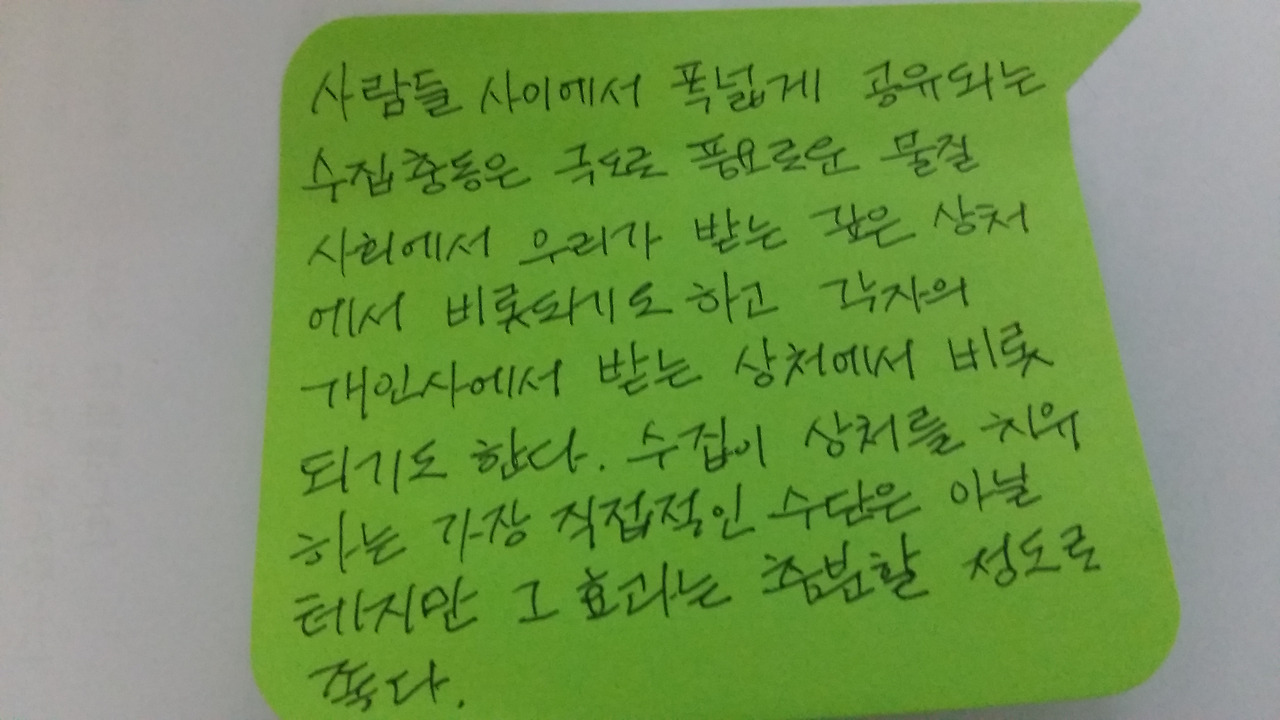 사람들 사이에서 폭넓게 공유되는
수집충동은 극도로 풍요로운 물질
사회에서 우리가 받는 깊은 상처
에서 비롯되기도 하고 각자의
개인사에서 받는 상처에서 비롯
되기도 한다. 수집이 상처를 치유
하는 가장 직접적인 수단은 아닐
테지만 그 효과는 충분할 정도로